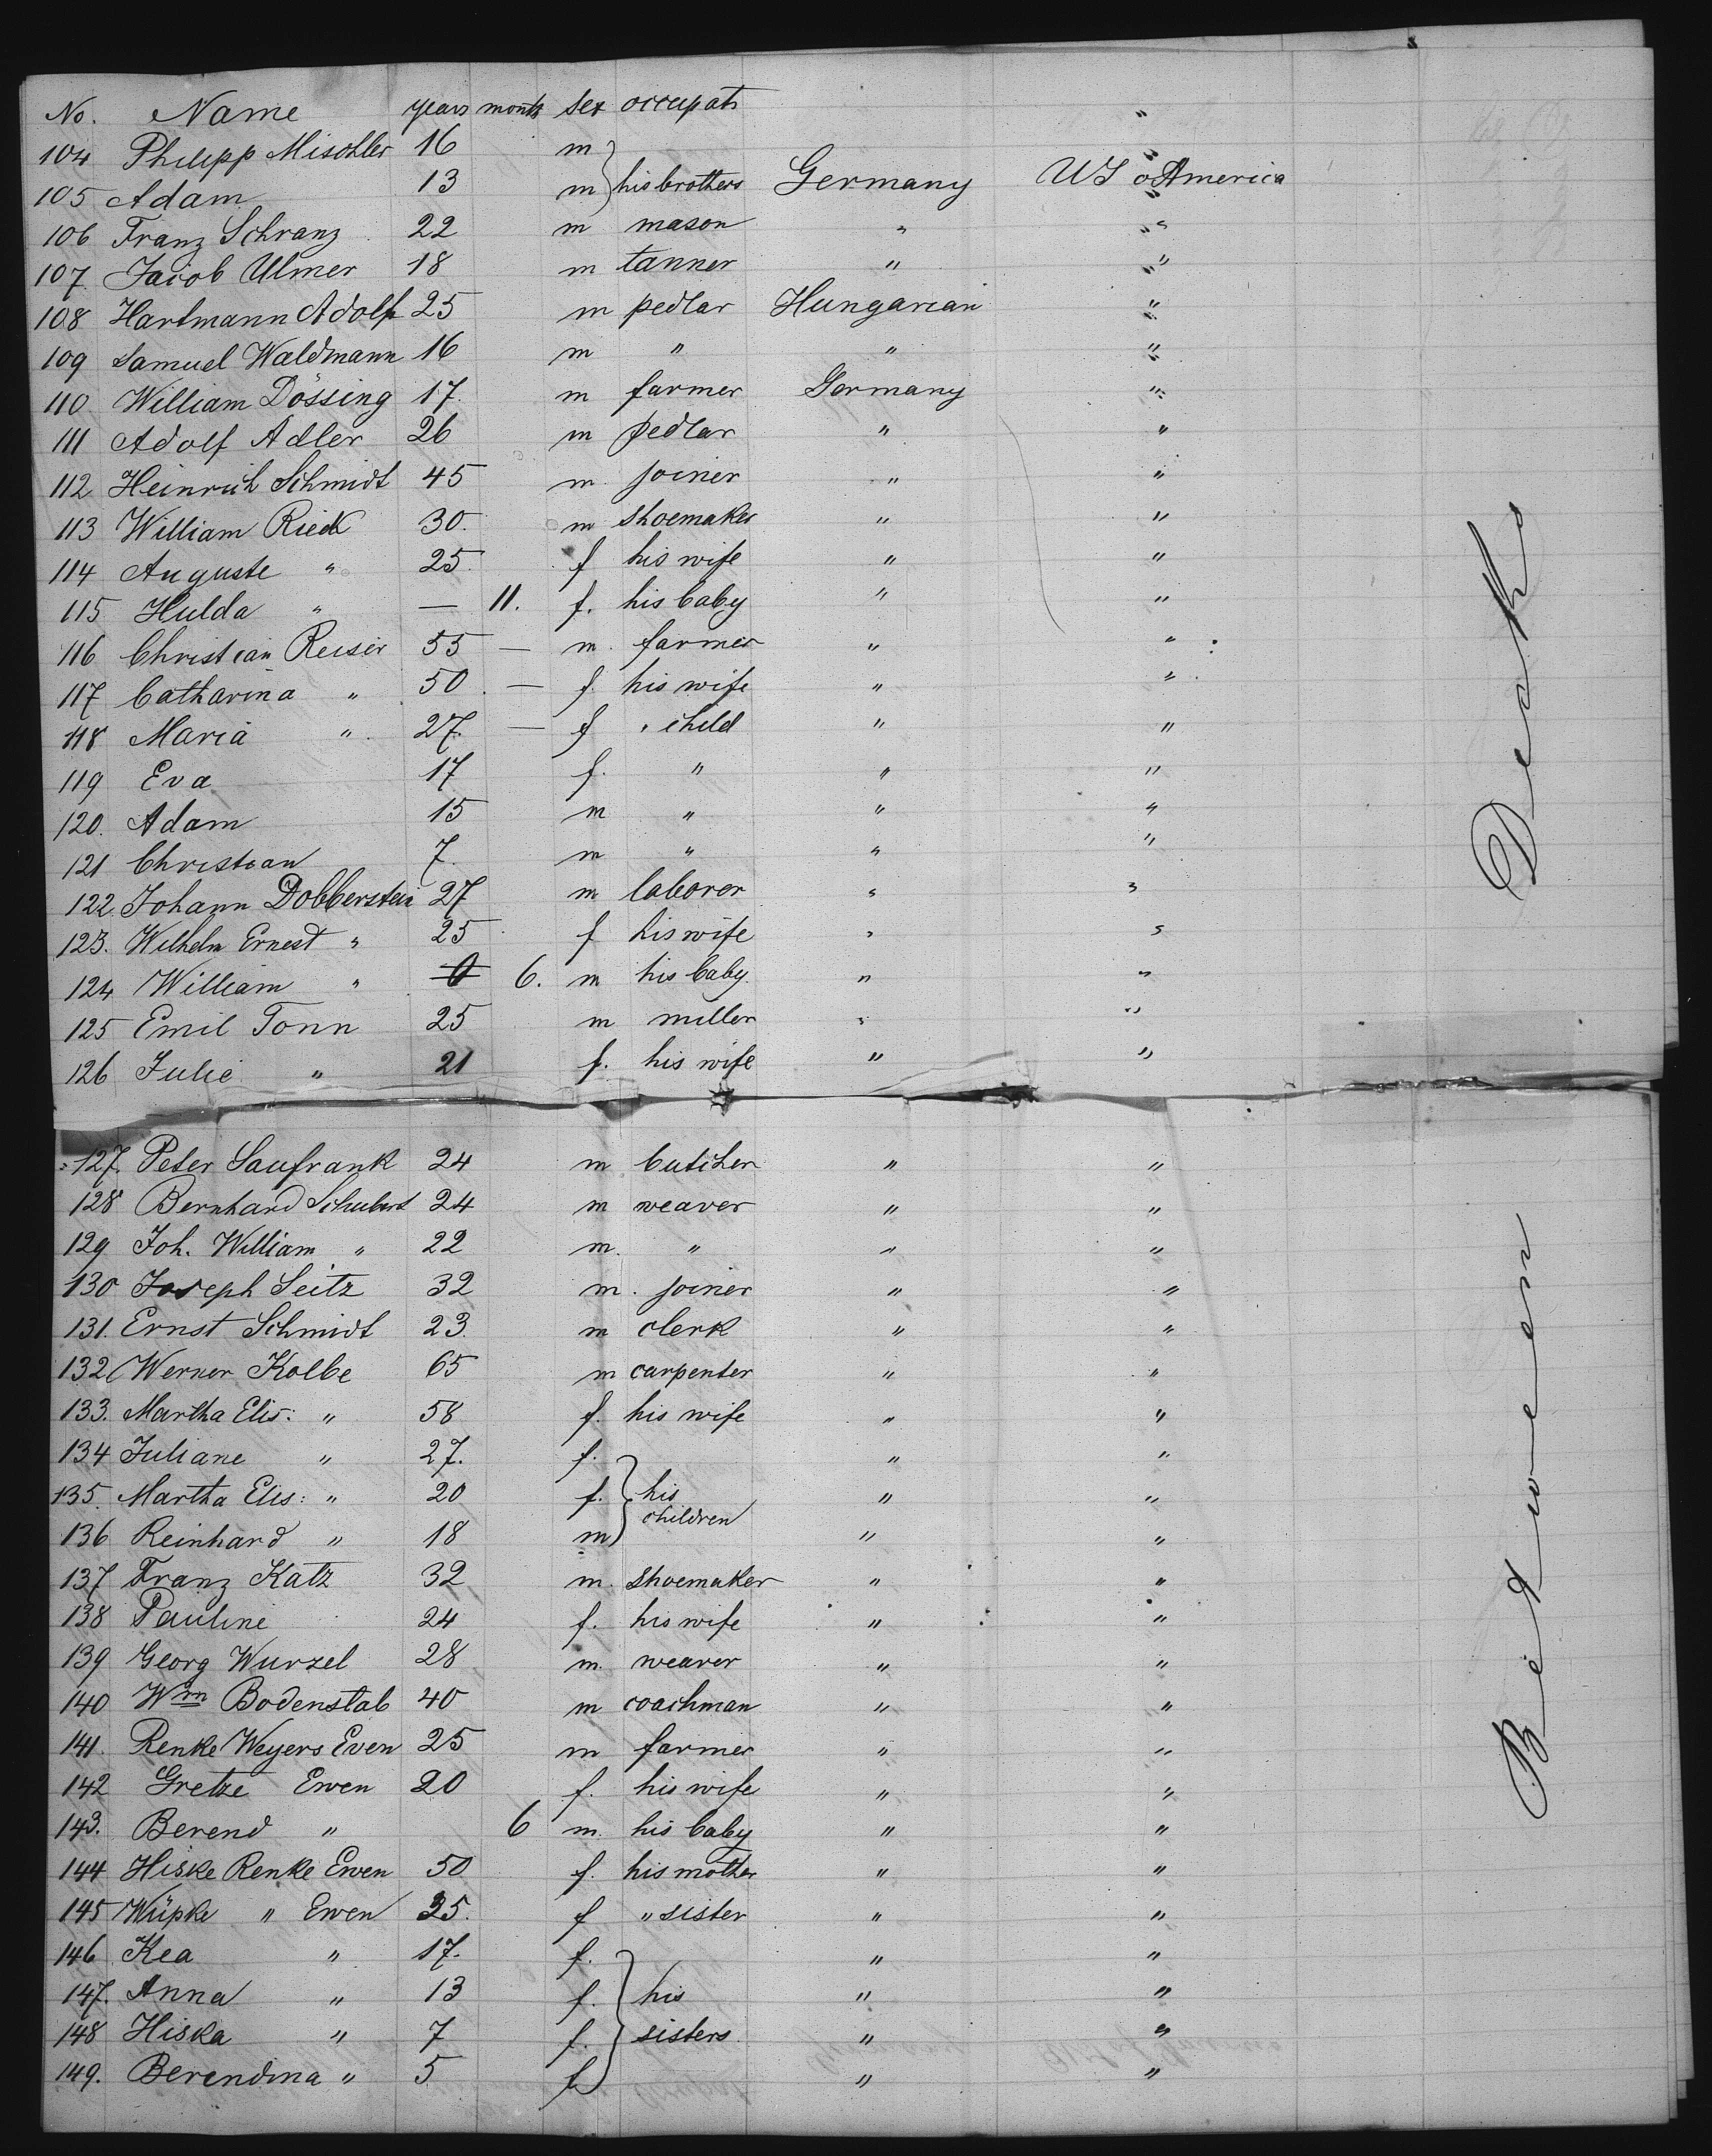 No. Name years month sex occupat "
104 Philipp Mischler 16 m "
105 Adam 13 m his brothers Germany US o America
106 Franz Schranz 22 m mason " "
107 Jacob Ulmer 18 m tanner " "
108 Hartmann Adolf 25 m pedlar Hungarian "
109 Samuel Waldmann 16 m " " "
110 William Dössing 17. m farmer Germany "
111 Adolf Adler 26 m pedlar " "
112 Heinrich Schmidt 45 m joiner " "
113 William Rieck 30. m shoemaker " "
114 Auguste " 25. f his wife " "
115 Hulda " — 11. f. his baby " "
116 Christian Reiser 55 — m. farmer " "
117 Catharina " 50. — f. his wife " "
118 Maria " 27. — f " child " "
119 Eva 17 f. " " "
120. Adam 15 m " " "
121 Christian 7. m " " "
122. Johann Dobberstein 27 m laboror " "
123. Wilhelm Ernest " 25 f his wife " "
124 William " 0 6. m his baby. " "
125 Emil Tonn 25 m miller " "
126 Julie " 21 f. his wife " "
127. Peter Saufrank 24 m butcher " "
128 Bernhard Schubert 24 m weaver " "
129 Joh. William " 22 m. " " "
130 Joseph Seitz 32 m. joiner " "
131. Ernst Schmidt 23. m clerk " "
132 Werner Kolbe 65 m carpenter " "
133. Martha Elis: " 58 f. his wife " "
134 Juliane " 27. f. " "
135. Martha Elis: " 20 f. his children " "
136 Reinhard " 18 m " "
137 Franz Katz 32 m. shoemaker " "
138 Pauline 24 f. his wife " "
139 Georg Wurzel 28 m. weaver " "
140 Wm Bodenstab 40 m coachman " "
141. Renke Weyers Even 25 m farmer " "
142 Gretze Ewen 20 f. his wife " "
143. Berend " 6 m. his baby " "
144 Hiske Renke Ewen 50 f. his mother " "
145 Wüpke " Ewen 35. f " sister " "
146 Kea " 17. f. " "
147. Anna " 13 f. his " "
148 Hiska " 7 f. sisters " "
149. Berendina " 5 f " "
Between Decks